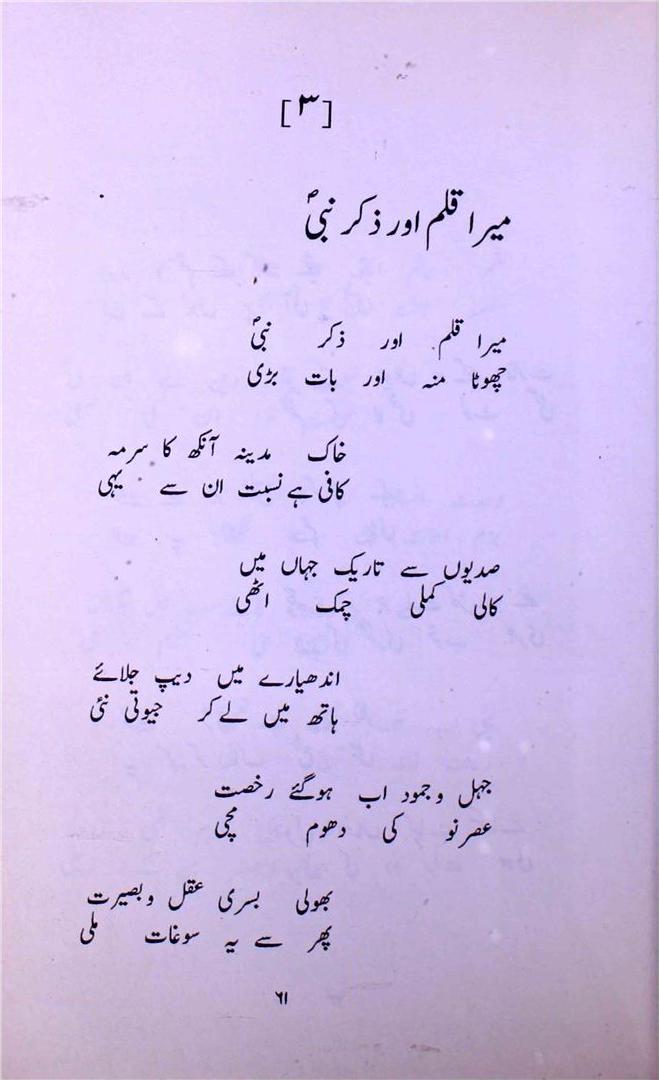 [۳]
میرا قلم اور ذکر نبیؐ
میرا قلم اور ذکر نبیؐ
چھوٹا منہ اور بات بڑی
خاک مدینہ آنکھ کا سرمہ
کافی ہے نسبت ان سے یہی
صدیوں سے تاریک جہاں میں
کالی کملی چمک اٹھی
اندھیارے میں دیپ جلائے
ہاتھ میں لے کر جیوتی نئی
جہل و جمود اب ہوگئے رخصت
عصر نو کی دھوم مچی
بھولی بسری عقل و بصیرت
پھر سے یہ سوغات ملی
۶۱